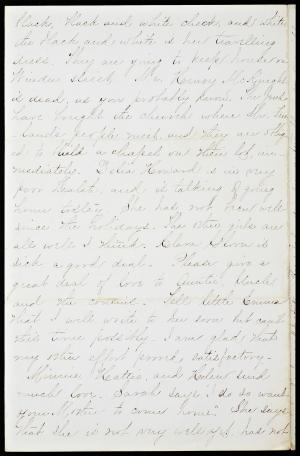 black, black and white check, and white
the black and white is her travelling
dress. They are going to keep house on
Windsor street. Mr. Henry McKnight
is dead, as you probably know. The Jews
have bought the church where the Uni-
people meet, and they are obliged
to build a chapel out their lot, im-
mediately. Delia Howard is in very
poor health, and is talking of going
home today. She has not been well
since the holidays. The other girls are
all well I think. Clara is
sick a good deal. Please give a
great deal of love to Auntie, Uncle
and the cousins. Tell little Emma
that I will write to her soon but can't
this time possibly. I am glad that
my other effort proved satisfactory.
Minnie, Hattie, and Helen send
much love. Sarah says "I do so want
your Mother to come home". She says
that she is not very well yet, has not